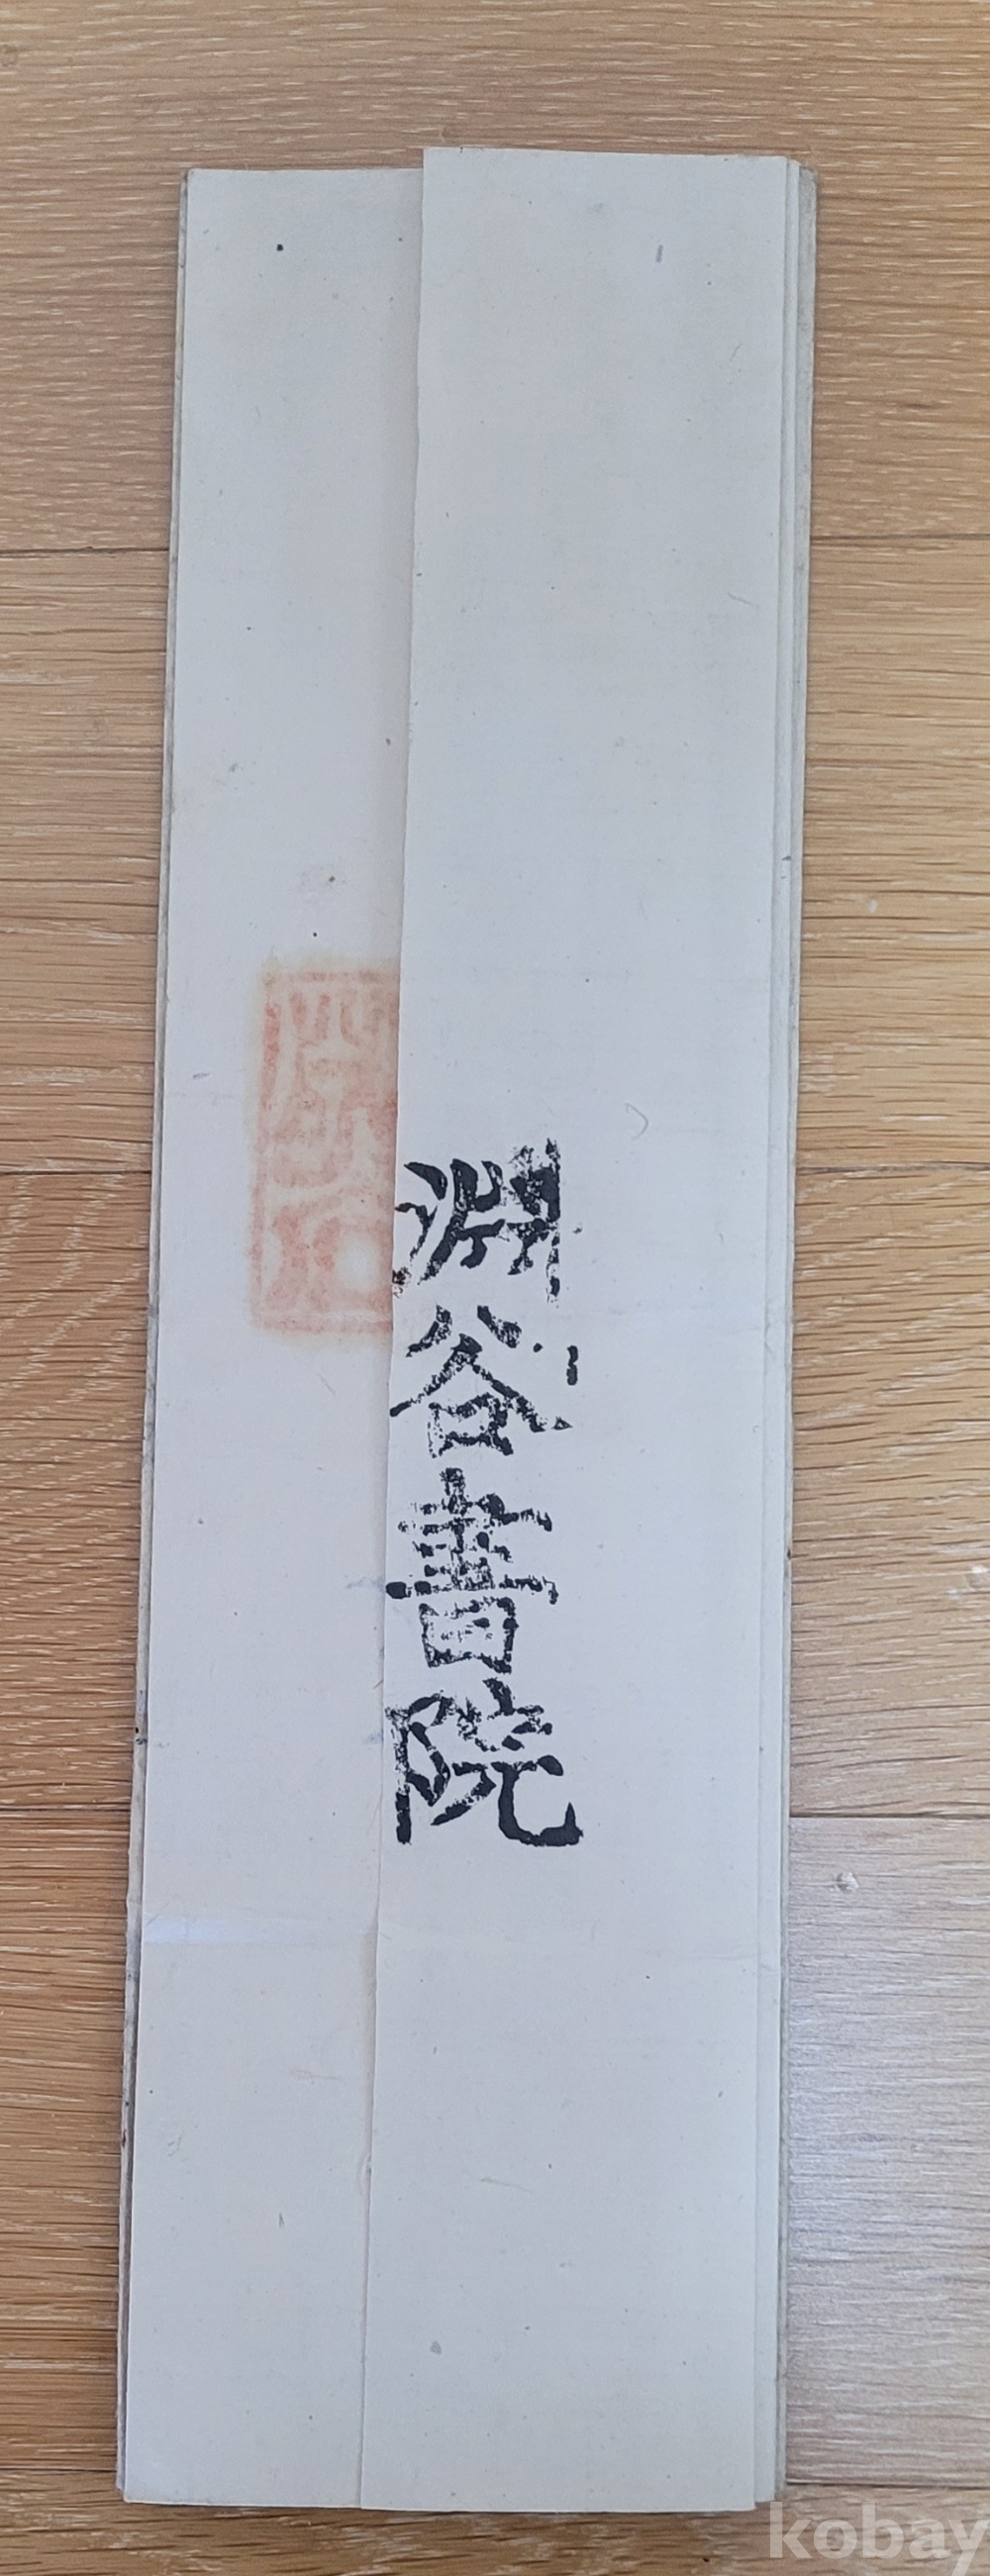 淵谷書院
kobay